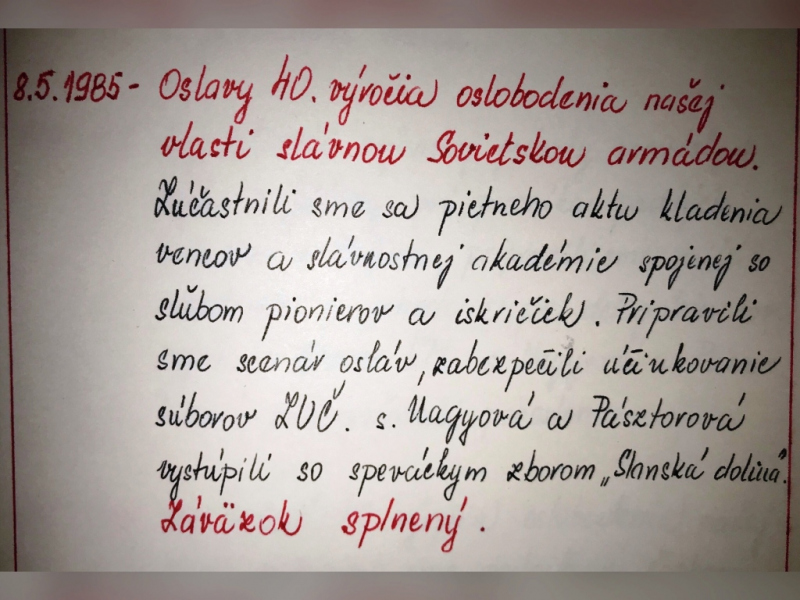 8.5.1985 - Oslavy 40. výročia oslobodenia našej
vlasti slávnou Sovietskou armádou.
Zúčastnili sme sa pietneho aktu kladenia
vencov a slávnostnej akadémie spojenej so
sľubom pionierov a iskričiek. Pripravili
sme scenár osláv, zabezpečili účinkovanie
súborov ZUČ. s. Nagyová a Pásztorová
vystúpili so speváckym zborom „Slanská dolina".
Záväzok splnený.